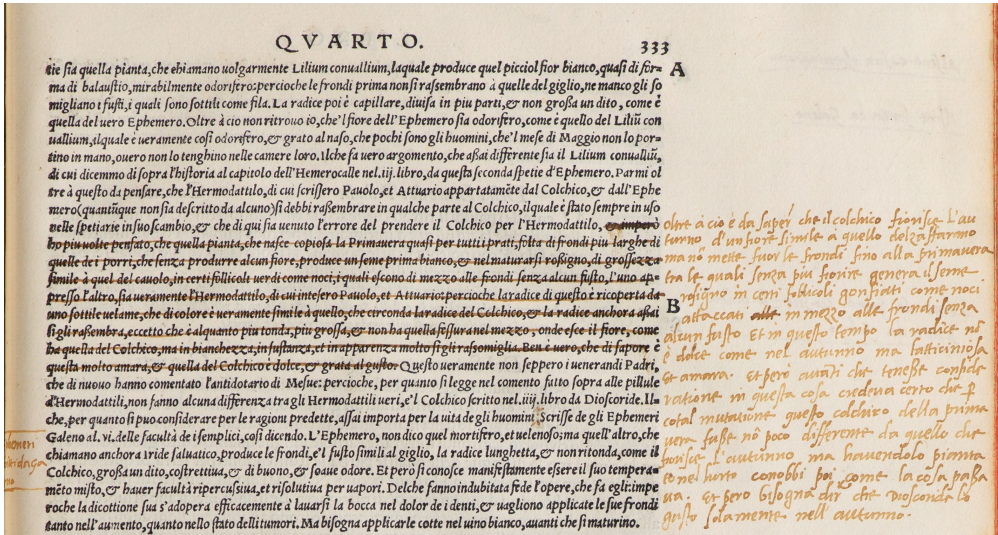 QVARTO. 333
tie sia quella pianta, che ehiamano volgarmente Lilium conuallium, laquale produce quel picciol fior bianco, quasi di for= A
ma di balaustio, mirabilmente odorifero: percioche le frondi prima non si raßembrano à quelle del giglio, ne manco gli so
migliano i fusti, i quali sono sottili come fila. La radice poi è capillare, diuisa in piu parti, & non großa un dito, come è
quella del uero Ephemero. Oltre à cio non ritrouo io, che'l fiore dell'Ephemero sia odorifero, come è quello del Liliũ con
uallium, ilquale è ueramente cosi odorifero, & grato al naso, che pochi sono gli huomini, che'l mese di Maggio non lo por=
tino in mano, ouero non lo tenghino nelle camere loro. Ilche fa uero argomento, che aßai differente sia il Lilium conualliũ,
di cui dicemmo di sopra l'historia al capitolo dell'Hemerocalle nel.iij.libro, da questa seconda spetie d'Ephemero. Parmi ol
tre à questo da pensare, che l'Hermodattilo, di cui scrissero Pauolo, et Attuario appartatamẽte dal Colchico, & dall'Ephe
mero (quantũque non sia descritto da alcuno) si debbi raßembrare in qualche parte al Colchico, ilquale è stato sempre in uso
nelle spetiarie in suo scambio, & che di qui sia uenuto l'errore del prendere il Colchico per l'Hermodattilo, & imperò
ho piu uolte pensato, che quella pianta, che nasce copiosa la Primauera quasi per tutti i prati, folta di frondi piu larghe di
quelle de i porri, che senza produrre alcun fiore, produce un seme prima bianco, & nel maturarsi roßigno, di großezza
simile à quel del cauolo, in certi follicoli uerdi come noci, i quali escono di mezzo alle frondi senza alcun fusto, l'uno ap=
presso l'altro, sia ueramente l'Hermodattilo, di cui intesero Pauolo, et Attuario: percioche la radice di questo è ricoperta da
uno sottile uelame, che di colore è ueramente simile à quello, che circonda la radice del Colchico, & la radice anchora aßai
si gli raßembra, eccetto che è alquanto piu tonda, piu großa, & non ha quella fessura nel mezzo, onde esce il fiore, come
ha quella del Colchico, ma in bianchezza, in sustanza, et in apparenza molto si gli rassomiglia. Ben è uero, che di sapore è
questa molto amara, & quella del Colchico è dolce, & grata al gusto. Questo ueramente non seppero i uenerandi Padri,
che di nuouo hanno comentato l'antidotario di Mesue: percioche, per quanto si legge nel comento fatto sopra alle pillule
d'Hermodattili, non fanno alcuna differẽza tra gli Hermodattili ueri, e'l Colchico scritto nel.iiij.libro da Dioscoride. Il=
che, per quanto si puo considerare per le ragioni predette, assai importa per la vita de gli huomini. Scrisse de gli Ephemeri
Galeno al.vi.delle facultà de i semplici, cosi dicendo. L'Ephemero, non dico quel mortifero, et uelenoso; ma quell'altro, che
chiamano anchora iride saluatico, produce le frondi, e'l fusto simili al giglio, la radice lunghetta, & non ritonda, come il
Colchico, großa un dito, costrettiua, & di buono, & soaue odore. Et però si conosce manifestamente eßere il suo tempera=
mẽto misto, & hauer facultà ripercußiua, et risolutiua per uapori. Delche fanno indubitata fede l'opere, che fa egli: impe
roche la dicottione sua s'adopera efficacemente à lauarsi la bocca nel dolor de i denti, & uagliono applicate le sue frondi
tanto nell'aumento, quanto nello stato delli tumori. Ma bisogna applicarle cotte nel uino bianco, auanti che si maturino.
oltre à ciò è da saper che il colchico fiorisce l'au
tunno d'un fiore simile à quello del zaffarano
ma nõ mette fuor le frondi sino alla primauera
tra le quali senza piu fiorire genera il seme
rosigno in certi follicoli gonfiati come noci
B attaccati alle in mezzo alle frondi senza
alcun fusto Et in questo tempo la radice nõ
è dolce come nel autunno ma fatticciosa
et amara. Et però auãti che tenesse conside
ratione in questa cosa credeua certo che p
cotal mutatione questo colchico della prima
uera fusse nõ poco differente da quello che
fiorisce l'autunno ma hauendolo pianta
to nel horto conobbi poi come la cosa passa
ua. Et pero bisogna dir che Dioscoride lo
gusto solamente nell'autunno.